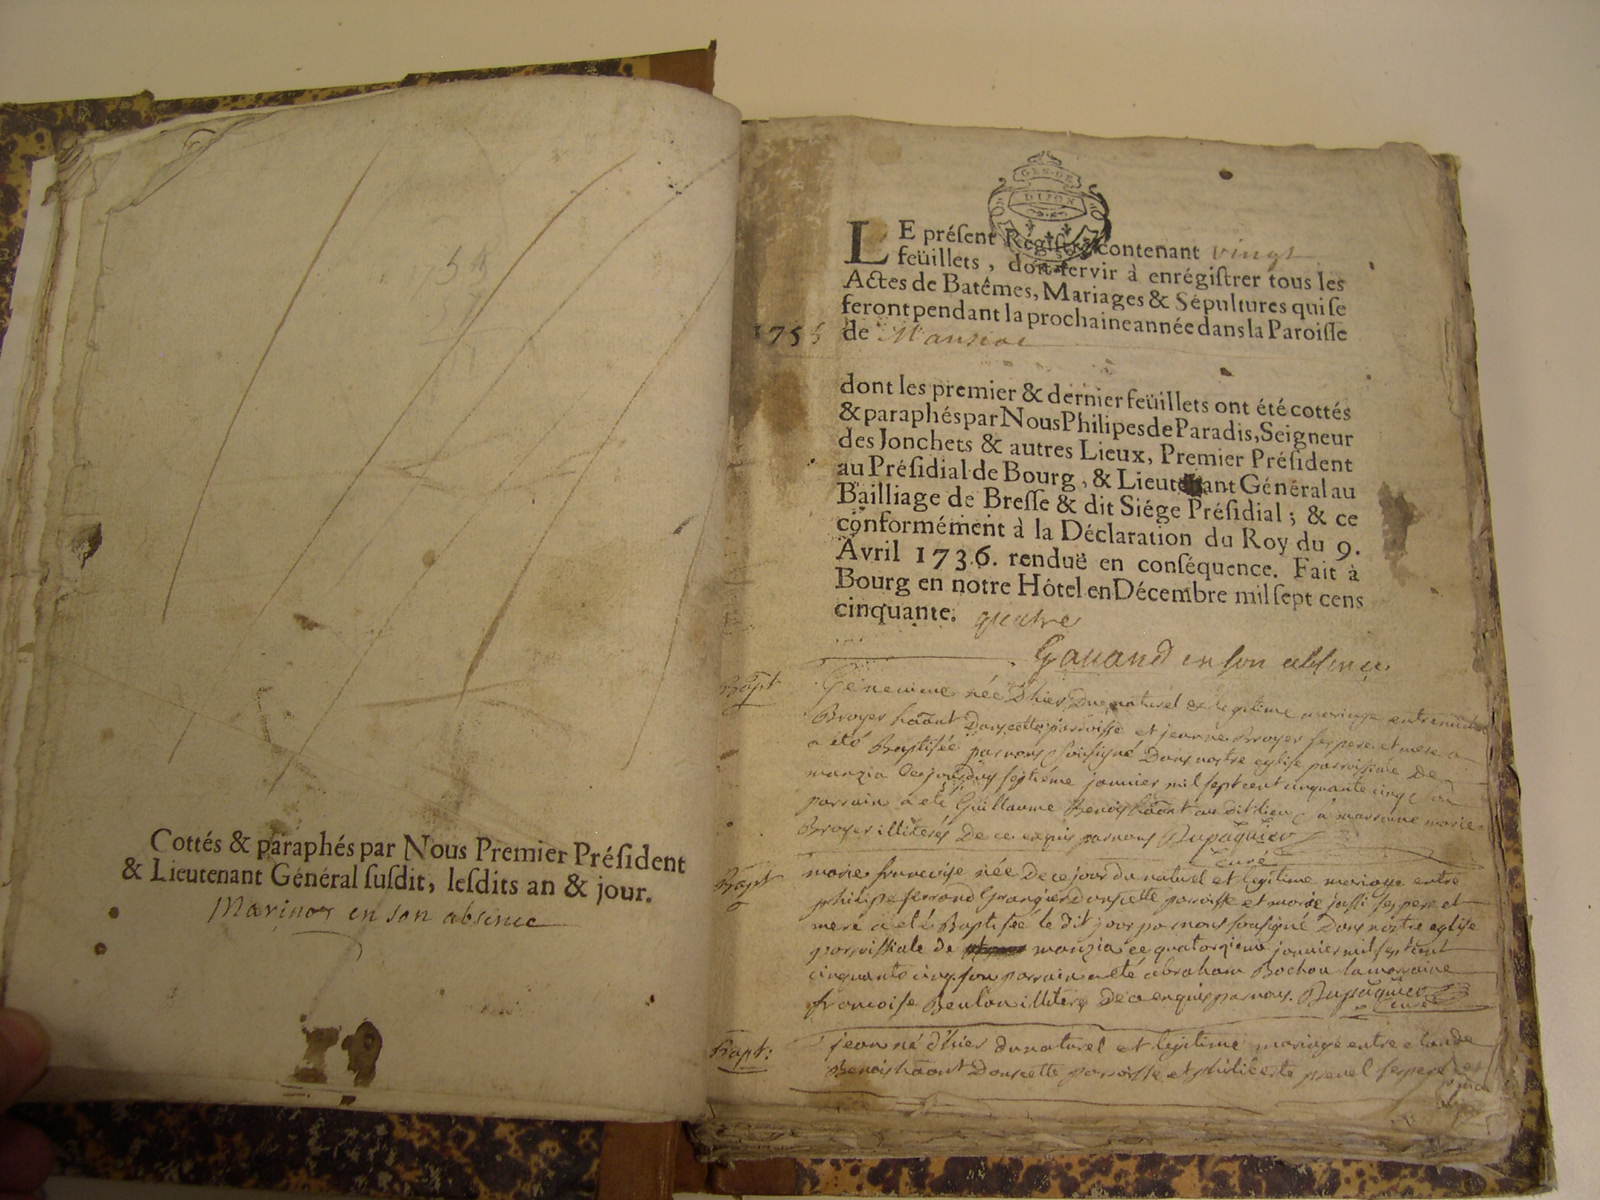 Cottés & paraphés par Nous Premier Préſident
& Lieutenant Général ſuſdit, leſdits an & jour.
en son absence
GEN. DE
DIJON
LE préſent Régiſtre contenant vingt
feüillets, doit ſervir à enrégiſtrer tous les
Actes de Batêmes, Mariages & Sépultures qui ſe
feront pendant la prochaine année dans la Paroiſſe
1755 de Manziat
dont les premier & dernier feüillets ont été cottés
& paraphés par Nous Philipes de Paradis, Seigneur
des Jonchets & autres Lieux, Premier Préſident
au Préſidial de Bourg, & Lieutenant Général au
Bailliage de Breſſe & dit Siége Préſidial; & ce
conformément à la Déclaration du Roy du 9.
Avril 1736. renduë en conſéquence. Fait à
Bourg en notre Hôtel en Décembre mil ſept cens
cinquante. quatre
en son absence
Bapt
née d'hier du naturel et legitime mariage entre
Broyer dans cette parroisse et jeanne Broyer ses pere et mere a
été Baptisée par nous soussigné Dans nostre eglise parroissiale De
manzia septiéme janvier mil sept cent cinquante cinq son
parrain a eté Guillaume Benoist la marraine marie
Broyer illiterés De ce enquis par nous Dupaquier
curé
Bapt
marie francoise née De ce jour du naturel et legitime mariage entre
philipe ferrand Granger ses pere et
mere a eté Baptisée le dit jour par nous soussigné Dans nostre eglise
parroissiale de manzia ce quatorzieme janvier mil sept cent
cinquante cinq son parrain a eté abraham Bochou la marraine
francoise illiteres De ce enquis par nous. Dupaquier
curé
Bapt:
jean né d'hier du naturel et legitime mariage entre claude
Benoist parroisse et philiberte ses pere et